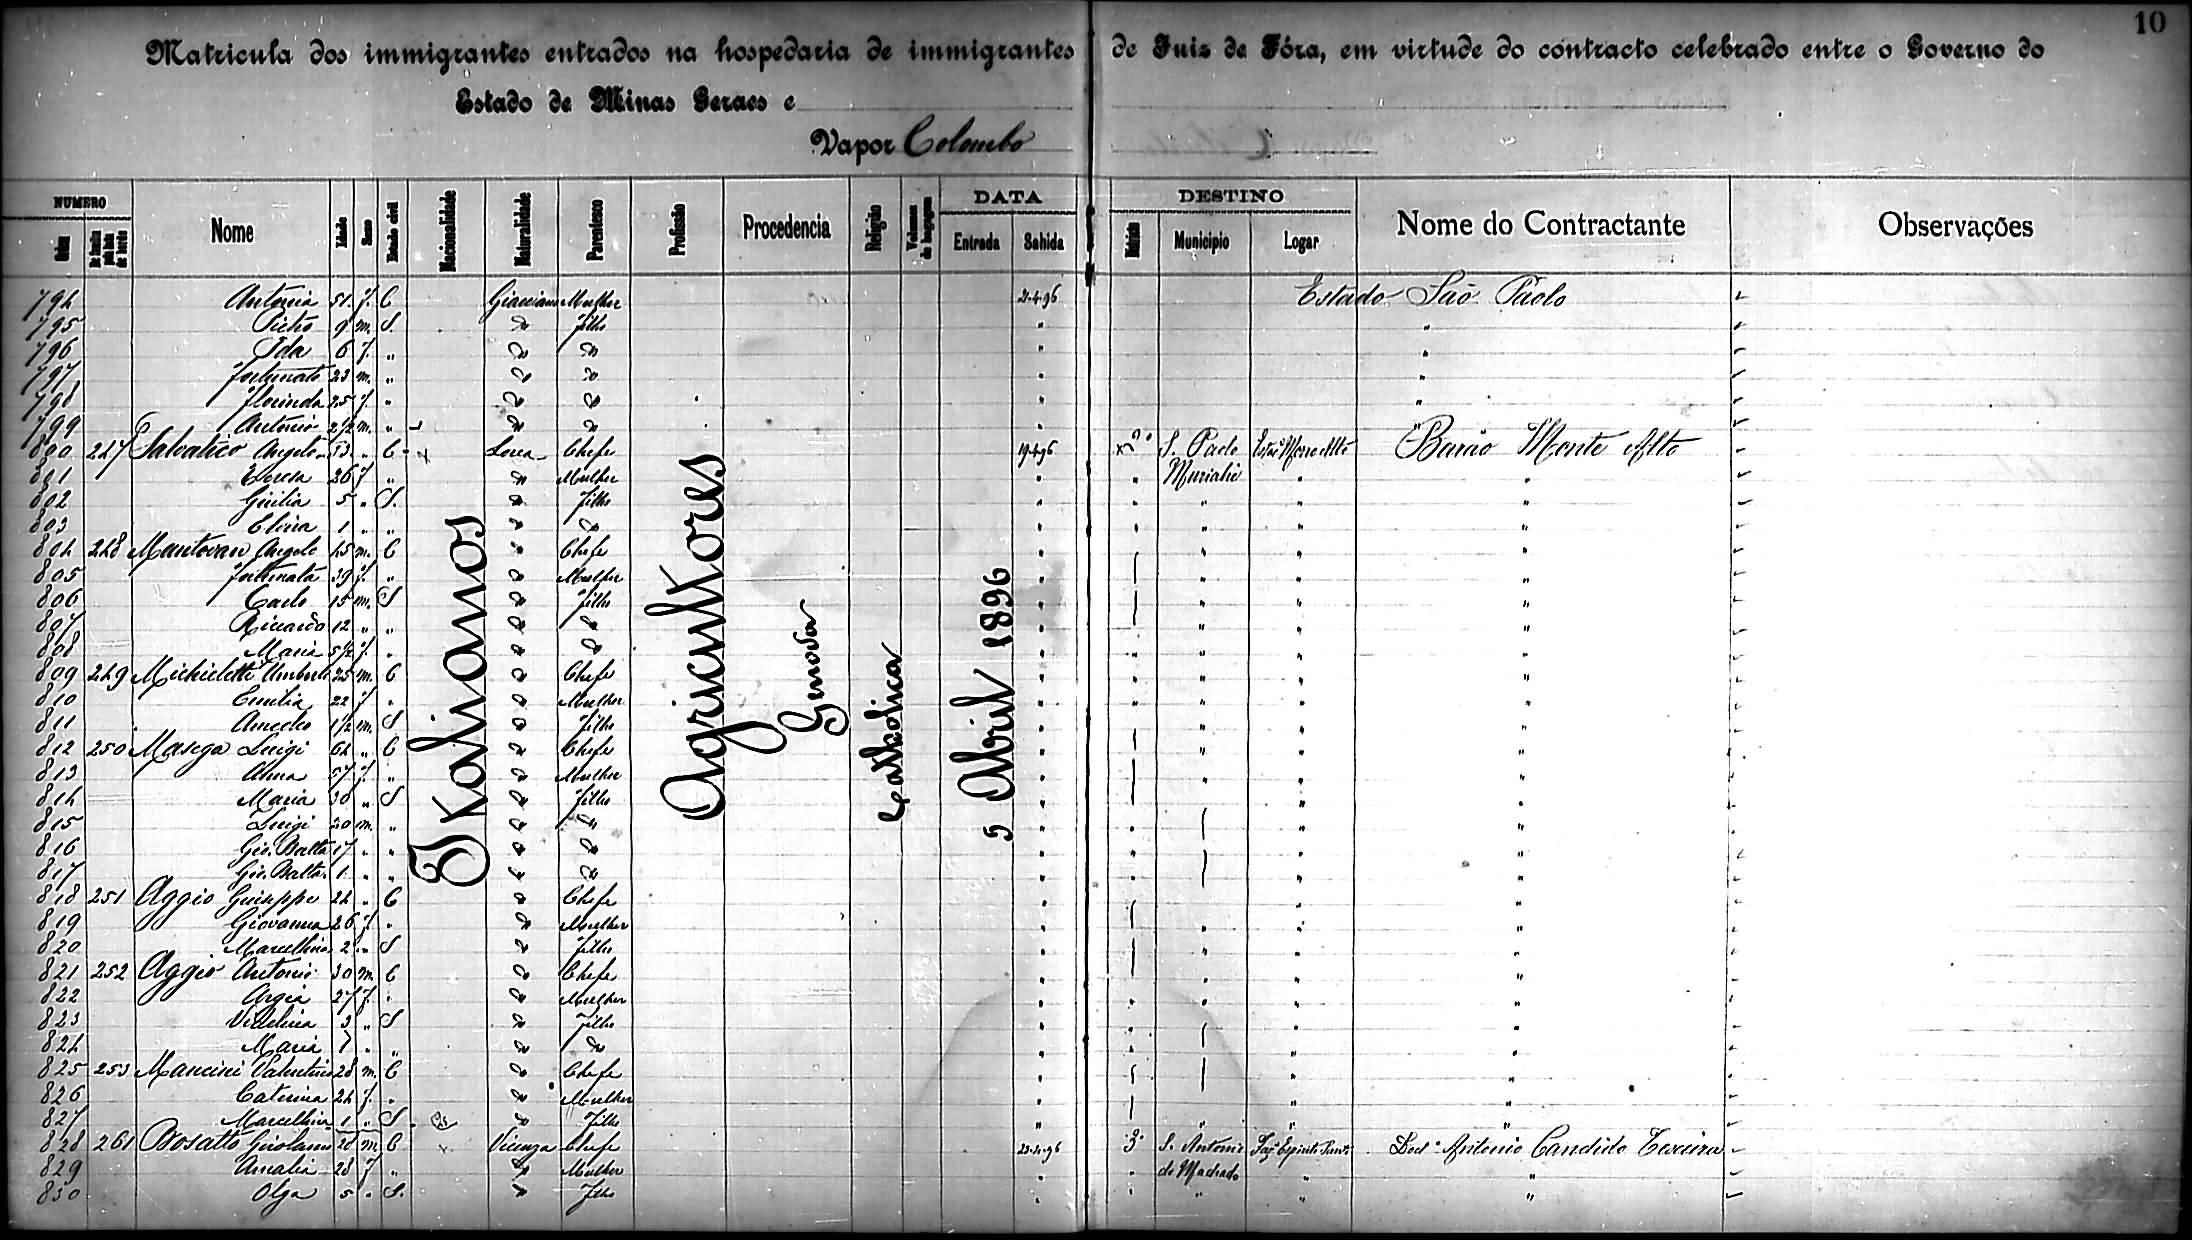 10
Matricula dos immigrantes entrados na hospedaria de immigrantes de Juiz de Fóra, em virtude do contracto celebrado entre o Governo do
Estado de Minas Geraes e
Vapor Colombo
NUMERO DATA DESTINO
Ordem Nome Idade Sexo Estado civil Nacionalidade Naturalidade Parentesco Profissão Procedencia Religião Volumes de bagagem Entrada Sahida Municipio Logar Nome do Contractante Observações
794 Antonia 51 f. C Mulher 21.4.96 Estado São Paolo
795 Pietro 9 m. S. " Filho " "
796 Ida 6 f. " " " " "
797 Fortunato 23 m. " " " " "
798 Florinda 25 f. " " " " "
799 Antonio 2 1/2 m. " " " " "
800 247 Salvatico Angelo 53 " C Chefe 19.4.96 2º S. Paolo Barão Monte Alto
801 Teresa 26 f " " Mulher " " Muriahé " "
802 Giulia 5 " S. " Filho " " " " "
803 1 " " " " " " " " "
804 248 Mantovan Angelo 45 m. C " Chefe " " " "
805 Fortunata 39 f. " " Mulher " " " "
806 Carlo 15 m. S " Filho " " " "
807 Riccardo 12 " " " " " " " " "
808 Maria 5 1/2 f. " " " " " " " "
809 249 Michieletti Umberto 25 m. C " Chefe " " " " "
810 Emilia 22 f " " Mulher " " " " "
811 Amedeo 1 1/2 m. S " Filho " " " "
812 250 Masega Luigi 64 " C " Chefe " " " "
813 Anna 57 f. " " Mulher " " " "
814 Maria 30 " S " Filho " " "
815 Luigi 20 m. " " " " " " "
816 Gio. Batta 17 " " " " " " " "
817 Gio. Batta. 1 " " " " " " " "
818 251 Aggio Guiseppe 24 " C " Chefe " " " "
819 Giovanna 26 f. " " Mulher " " " "
820 Marcellina 2 " S " Filho " " " "
821 252 Aggio Antonio 30 m. C " Chefe " " " "
822 Argia 27 f. " " Mulher " " " " "
823 3 " S " Filho " " " "
824 Maria 1 " " " " " " " "
825 253 Mancini Valentino 28 m. C " Chefe " " "
826 Caterina 24 f. " " Mulher " " "
827 Marcellina 1 " S. " Filho " " " "
828 261 Bosatto Girolamo 28 m. C Vicenza Chefe 23.4.96 3º S. Antonio Antonio Candido Texeira
829 Amalia 28 f " " Mulher " " do Machado " "
830 Olga 5 " S. " Filho " " " " "
Italianos
Agricultores
Genova
Catholica
5 Abril 1896